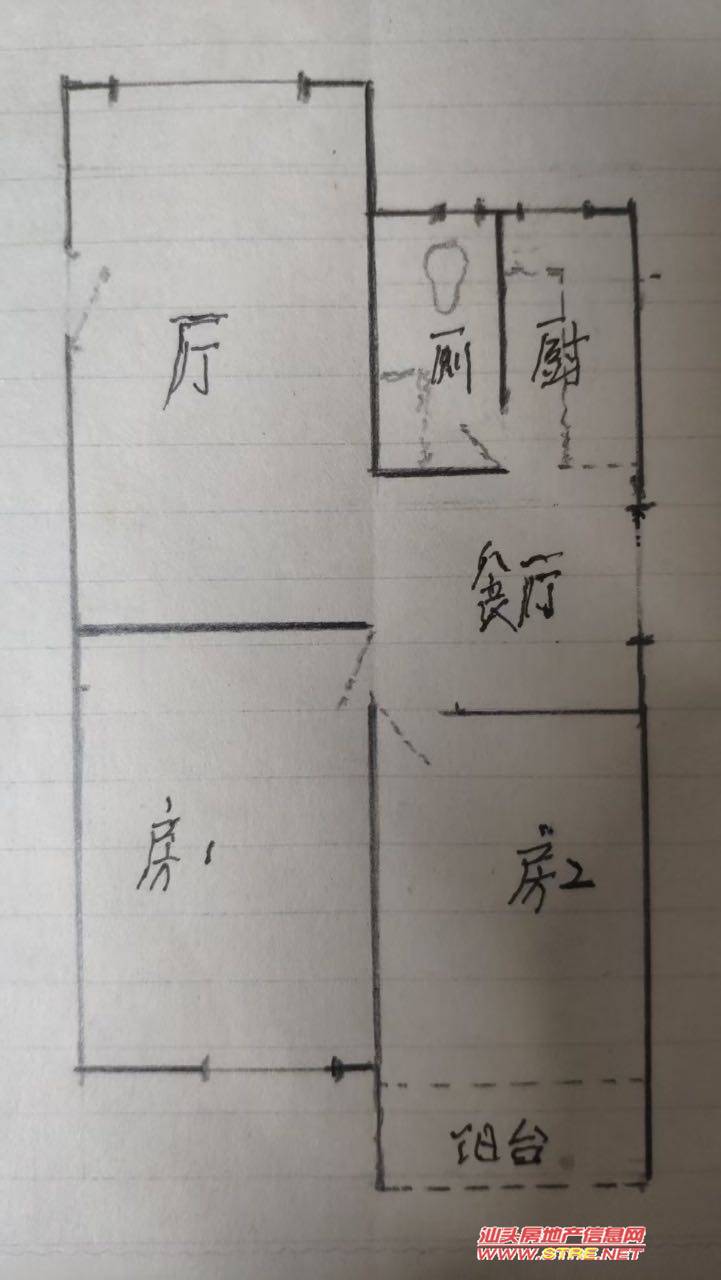 厅
厕
厨
餐厅
房1
房2
阳台
汕头房地产信息网
WWW.STRE.NET